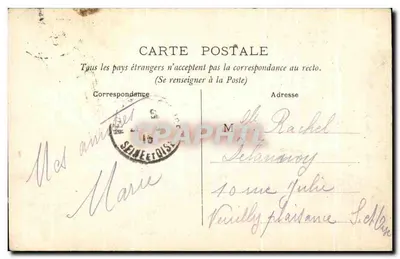 CARTE POSTALE
Tous les pays étrangers n'acceptent pas la correspondance au recto.
(Se renseigner à la Poste)
Correspondance
Mes amitiés
Marie
SEINE ET OISE
Adresse
M lle Rachel
10 rue Julie
Neuilly plaisance S. et Oise